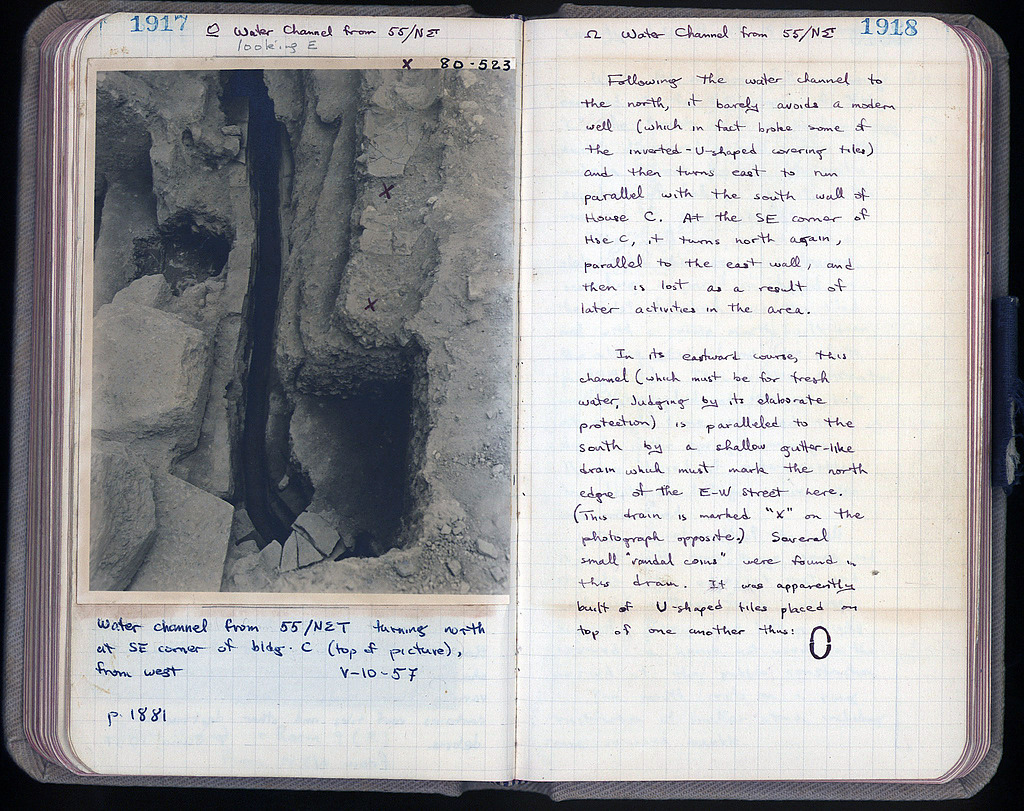 1917
O Water Channel from 55/ΝΣ
looking E
X 80-523
X
X
Water channel from 55/ΝΣΤ turning north
at SE corner of bldg. C (top of picture),
from west V-10-57
p. 1881
Ω Water Channel from 55/ΝΣ 1918
Following the water channel to
the north, it barely avoids a modern
well (which in fact broke some of
the inverted-U-shaped covering tiles)
and then turns east to run
parallel with the south wall of
House C. At the SE corner of
Hse C, it turns north again,
parallel to the east wall, and
then is lost as a result of
later activities in the area.
In its eastward course, this
channel (which must be for fresh
water, judging by its elaborate
protection) is paralleled to the
south by a shallow gutter-like
drain which must mark the north
edge of the E-W street here.
(This drain is marked "X" on the
photograph opposite.) Several
small "vandal coins" were found in
this drain. It was apparently
built of U-shaped tiles placed on
top of one another thus: 0